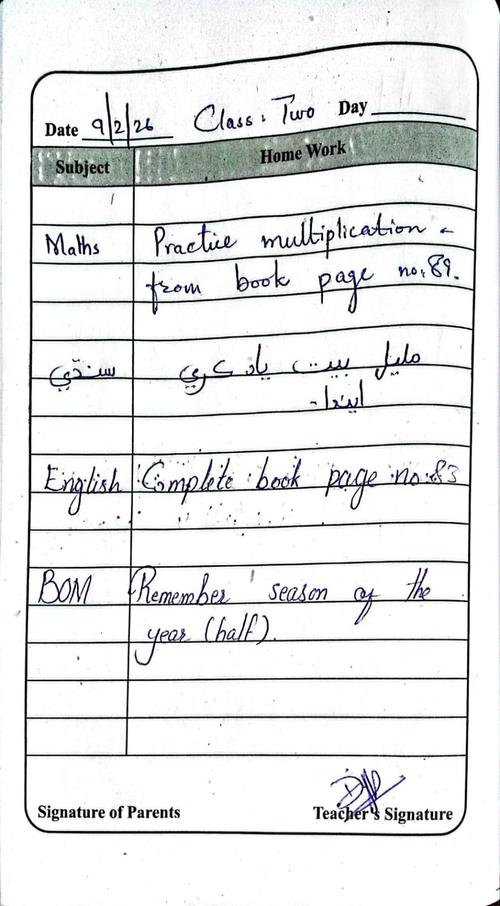 Date 9/2/26 Class: Two Day
Subject Home Work
Maths Practice multiplication
from book page no:89.
سنڌي مليل بيت ياد ڪري
ايندا-
English Complete book page no:83
BOM Remember season of the
year (half).
Signature of Parents Teacher's Signature